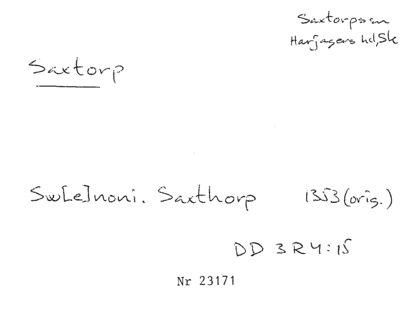 Saxtorps sn
Harjagers hd, Sk
Saxtorp
Sw[e]noni. Saxthorp 1353 (orig.)
DD 3 R 4:15
Nr 23171